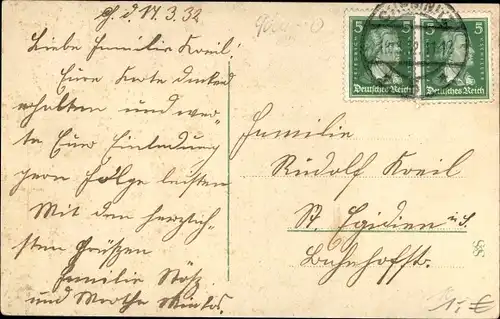 d. 17.3.32
Liebe Familie Kreil!
Eure Karte dankend
erhalten und wer-
te Eurer Einladung
gern Folge leisten
Mit den herzlich-
sten Grüßen
Familie
und Martha
5
5
Deutsches Reich
Deutsches Reich
Familie
Rudolf Kreil
St. Egidien
Bahnhofstr.
1,- €